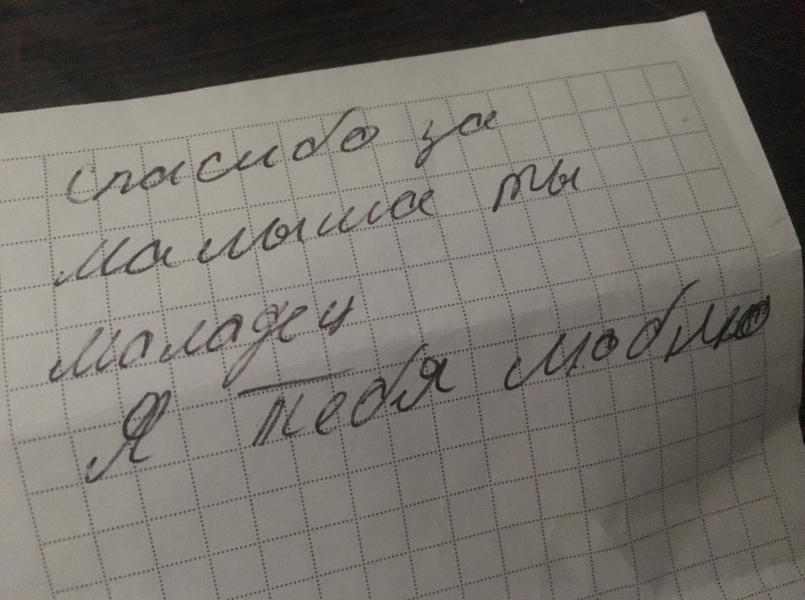 спасибо за
малыша ты
маладец
Я тебя люблю